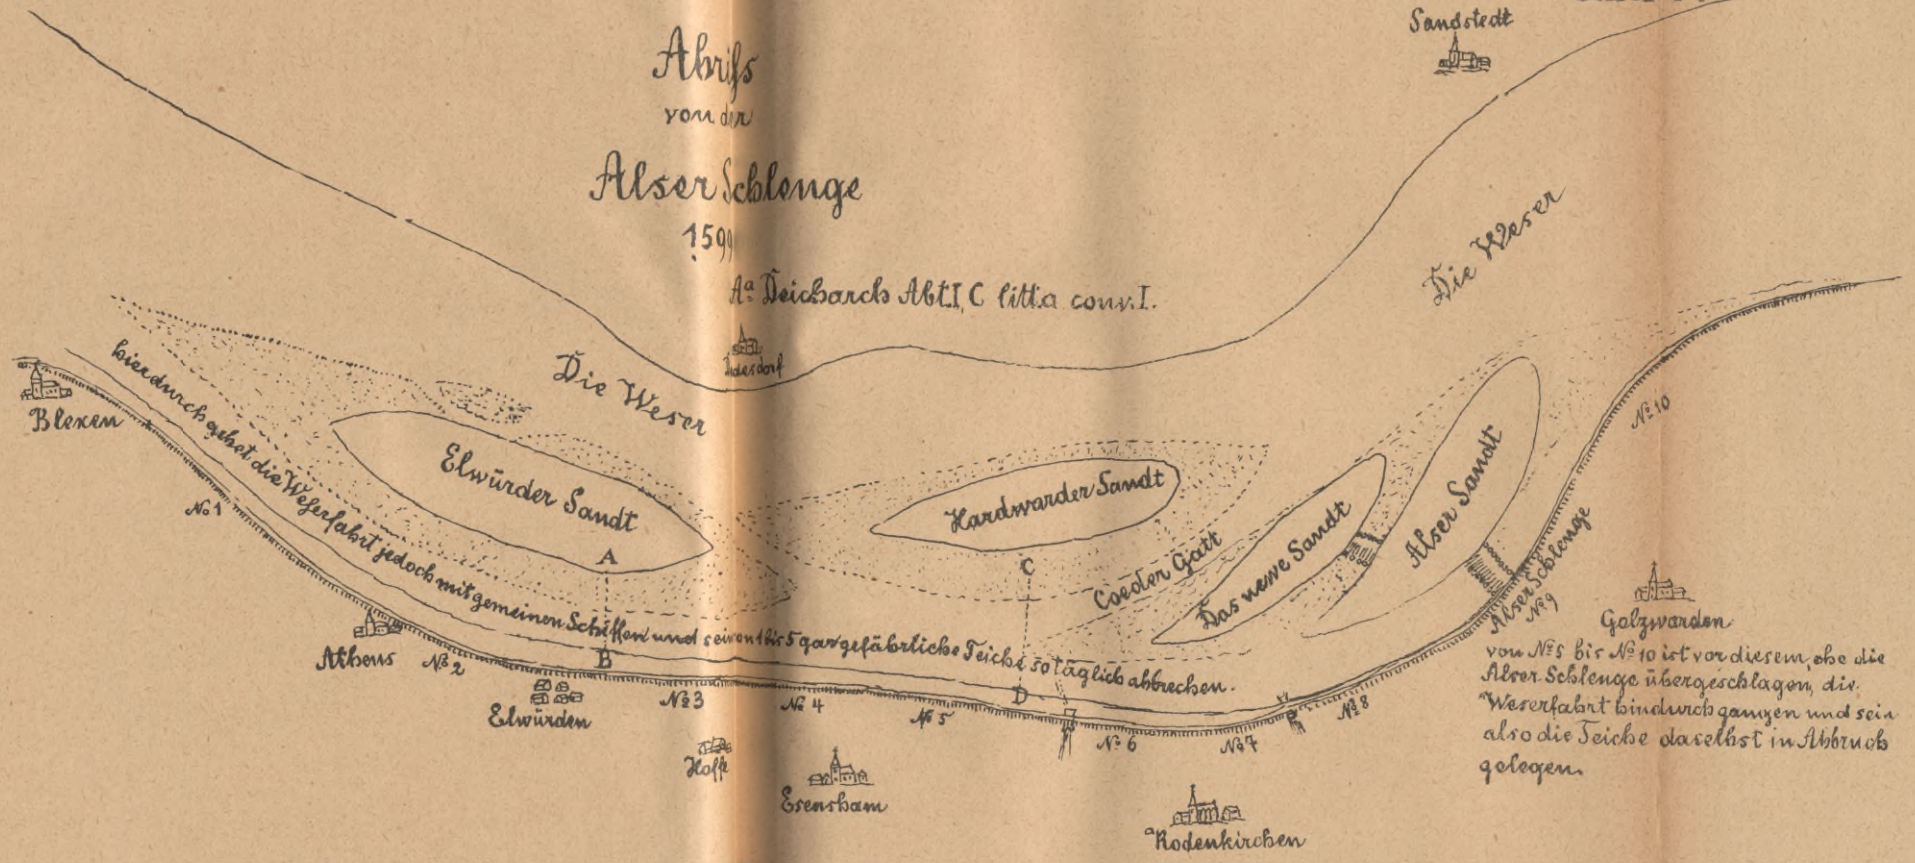 Sandstedt
Abriſs
von der
Alser Schlenge
1599
Aª Deicharch Abt. I, C litt. a conv. I.
Die Weser
Dedesdorf
Die Weser
Blexen
hierdurch gehet die Weserfahrt jedoch mit gemeinen Schiffen und sein von 1 bis 5 gar gefährliche Teiche so täglich abbrechen.
Elwürder Sandt
Hardwarder Sandt
Coeder Gatt
Das newe Sandt
Alser Sandt
Alser Schlenge
A
B
C
D
№ 1
№ 2
№ 3
№ 4
№ 5
№ 6
№ 7
№ 8
№ 9
№ 10
Athens
Elwürden
Hoffe
Esensham
Rodenkirchen
Golzwarden
von № 5 bis № 10 ist vor diesem, ehe die
Alser Schlenge übergeschlagen, die
Weserfahrt hindurch gangen und sein
also die Teiche daselbst in Abbruch
gelegen.